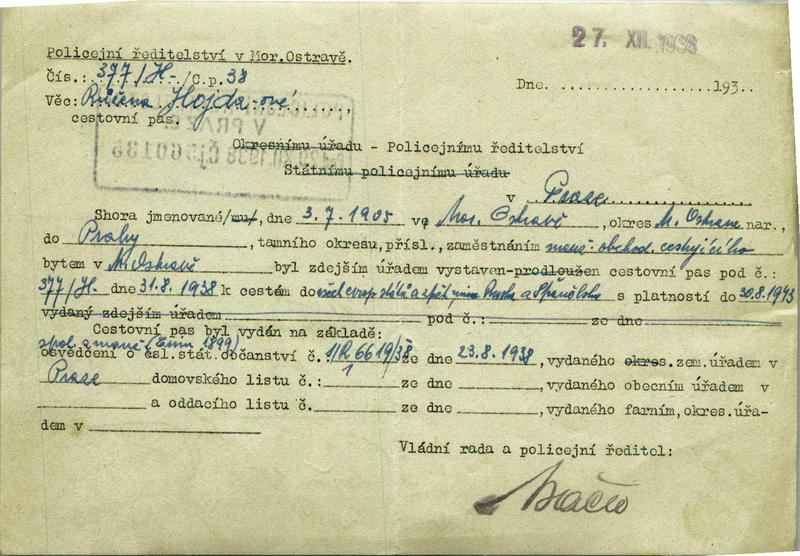 27. XII. 1938
Policejní ředitelství v Mor.Ostravě.
Čís.: 377/H-/C.p.38
Dne...................193..
Věc: Růžena Hojda-ové
cestovní pas.
V PRAZE
Okresnímu úřadu - Policejnímu ředitelství
Státnímu policejnímu úřadu
v Praze
Shora jmenované/mu/, dne 3.7.1905 ve Mor. Ostravě, okres M. Ostrava nar.,
do Prahy, tamního okresu, přísl., zaměstnáním manž. obchod. cestujícího
bytem v M.Ostravě byl zdejším úřadem vystaven-prodloužen cestovní pas pod č.:
377/H. dne 31.8.1938 k cestám do všech evrop. států a zpět mimo Ruska a Španělska s platností do 30.8.1943
vydaný zdejším úřadem pod č.: ze dne
Cestovní pas byl vydán na základě:
spol. s manž. (Emin 1899)
osvědčení o čsl.stát.občanství č. ze dne 23.8.1938, vydaného okres.zem.úřadem v
Praze domovského listu č.: ze dne , vydaného obecním úřadem v
a oddacího listu č. ze dne , vydaného farním, okres.úřa-
dem v
Vládní rada a policejní ředitel: